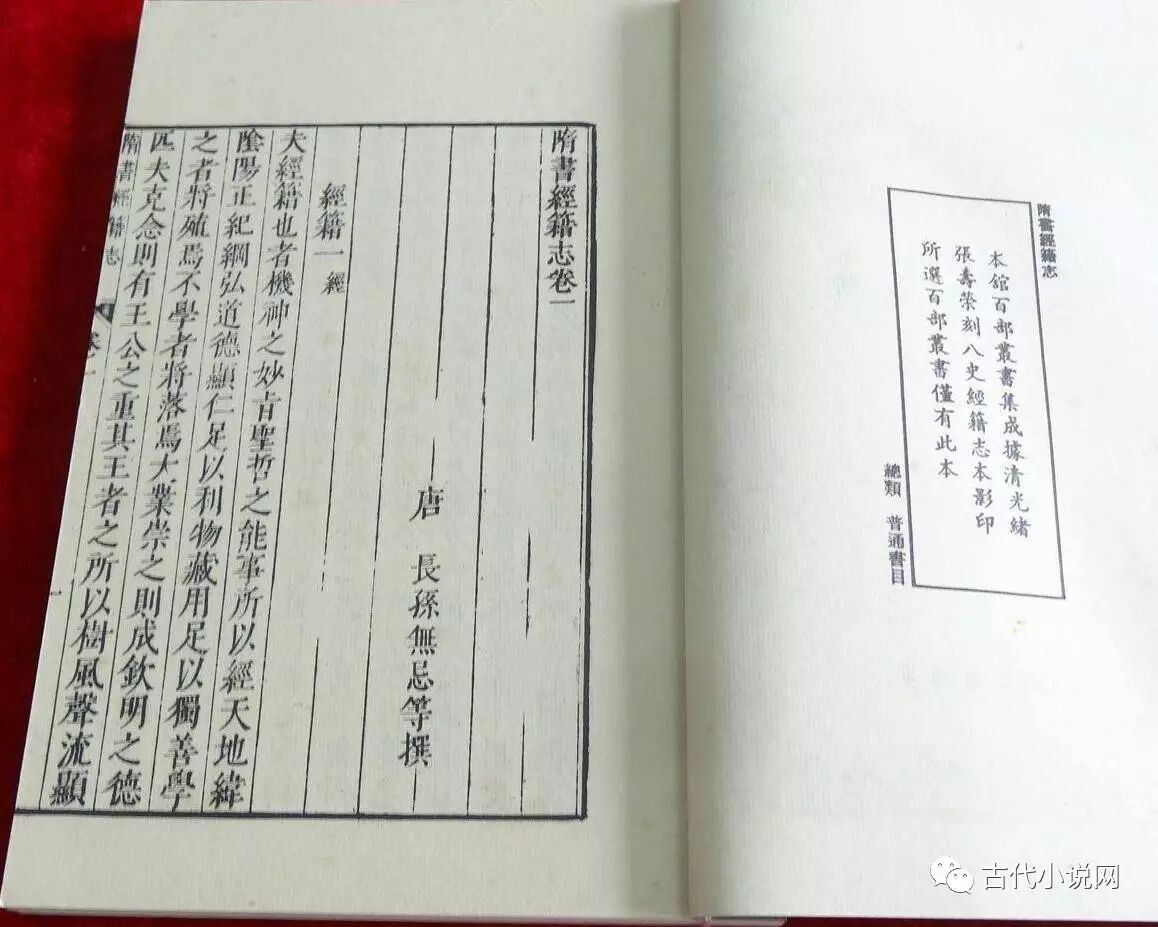 隋書經籍志
本館百部叢書集成據清光緒
張壽榮刻八史經籍志本影印
所選百部叢書僅有此本
總類 普通書目
隋書經籍志卷一
唐 長孫無忌等撰
經籍一 經
夫經籍也者機神之妙旨聖哲之能事所以經天地緯
隂陽正紀綱弘道德顯仁足以利物藏用足以獨善學
之者將殖焉不學者將落焉大業崇之則成欽明之德
匹夫克念則有王公之重其王者之所以樹風聲流顯
隋書經籍志 卷一
古代小说网